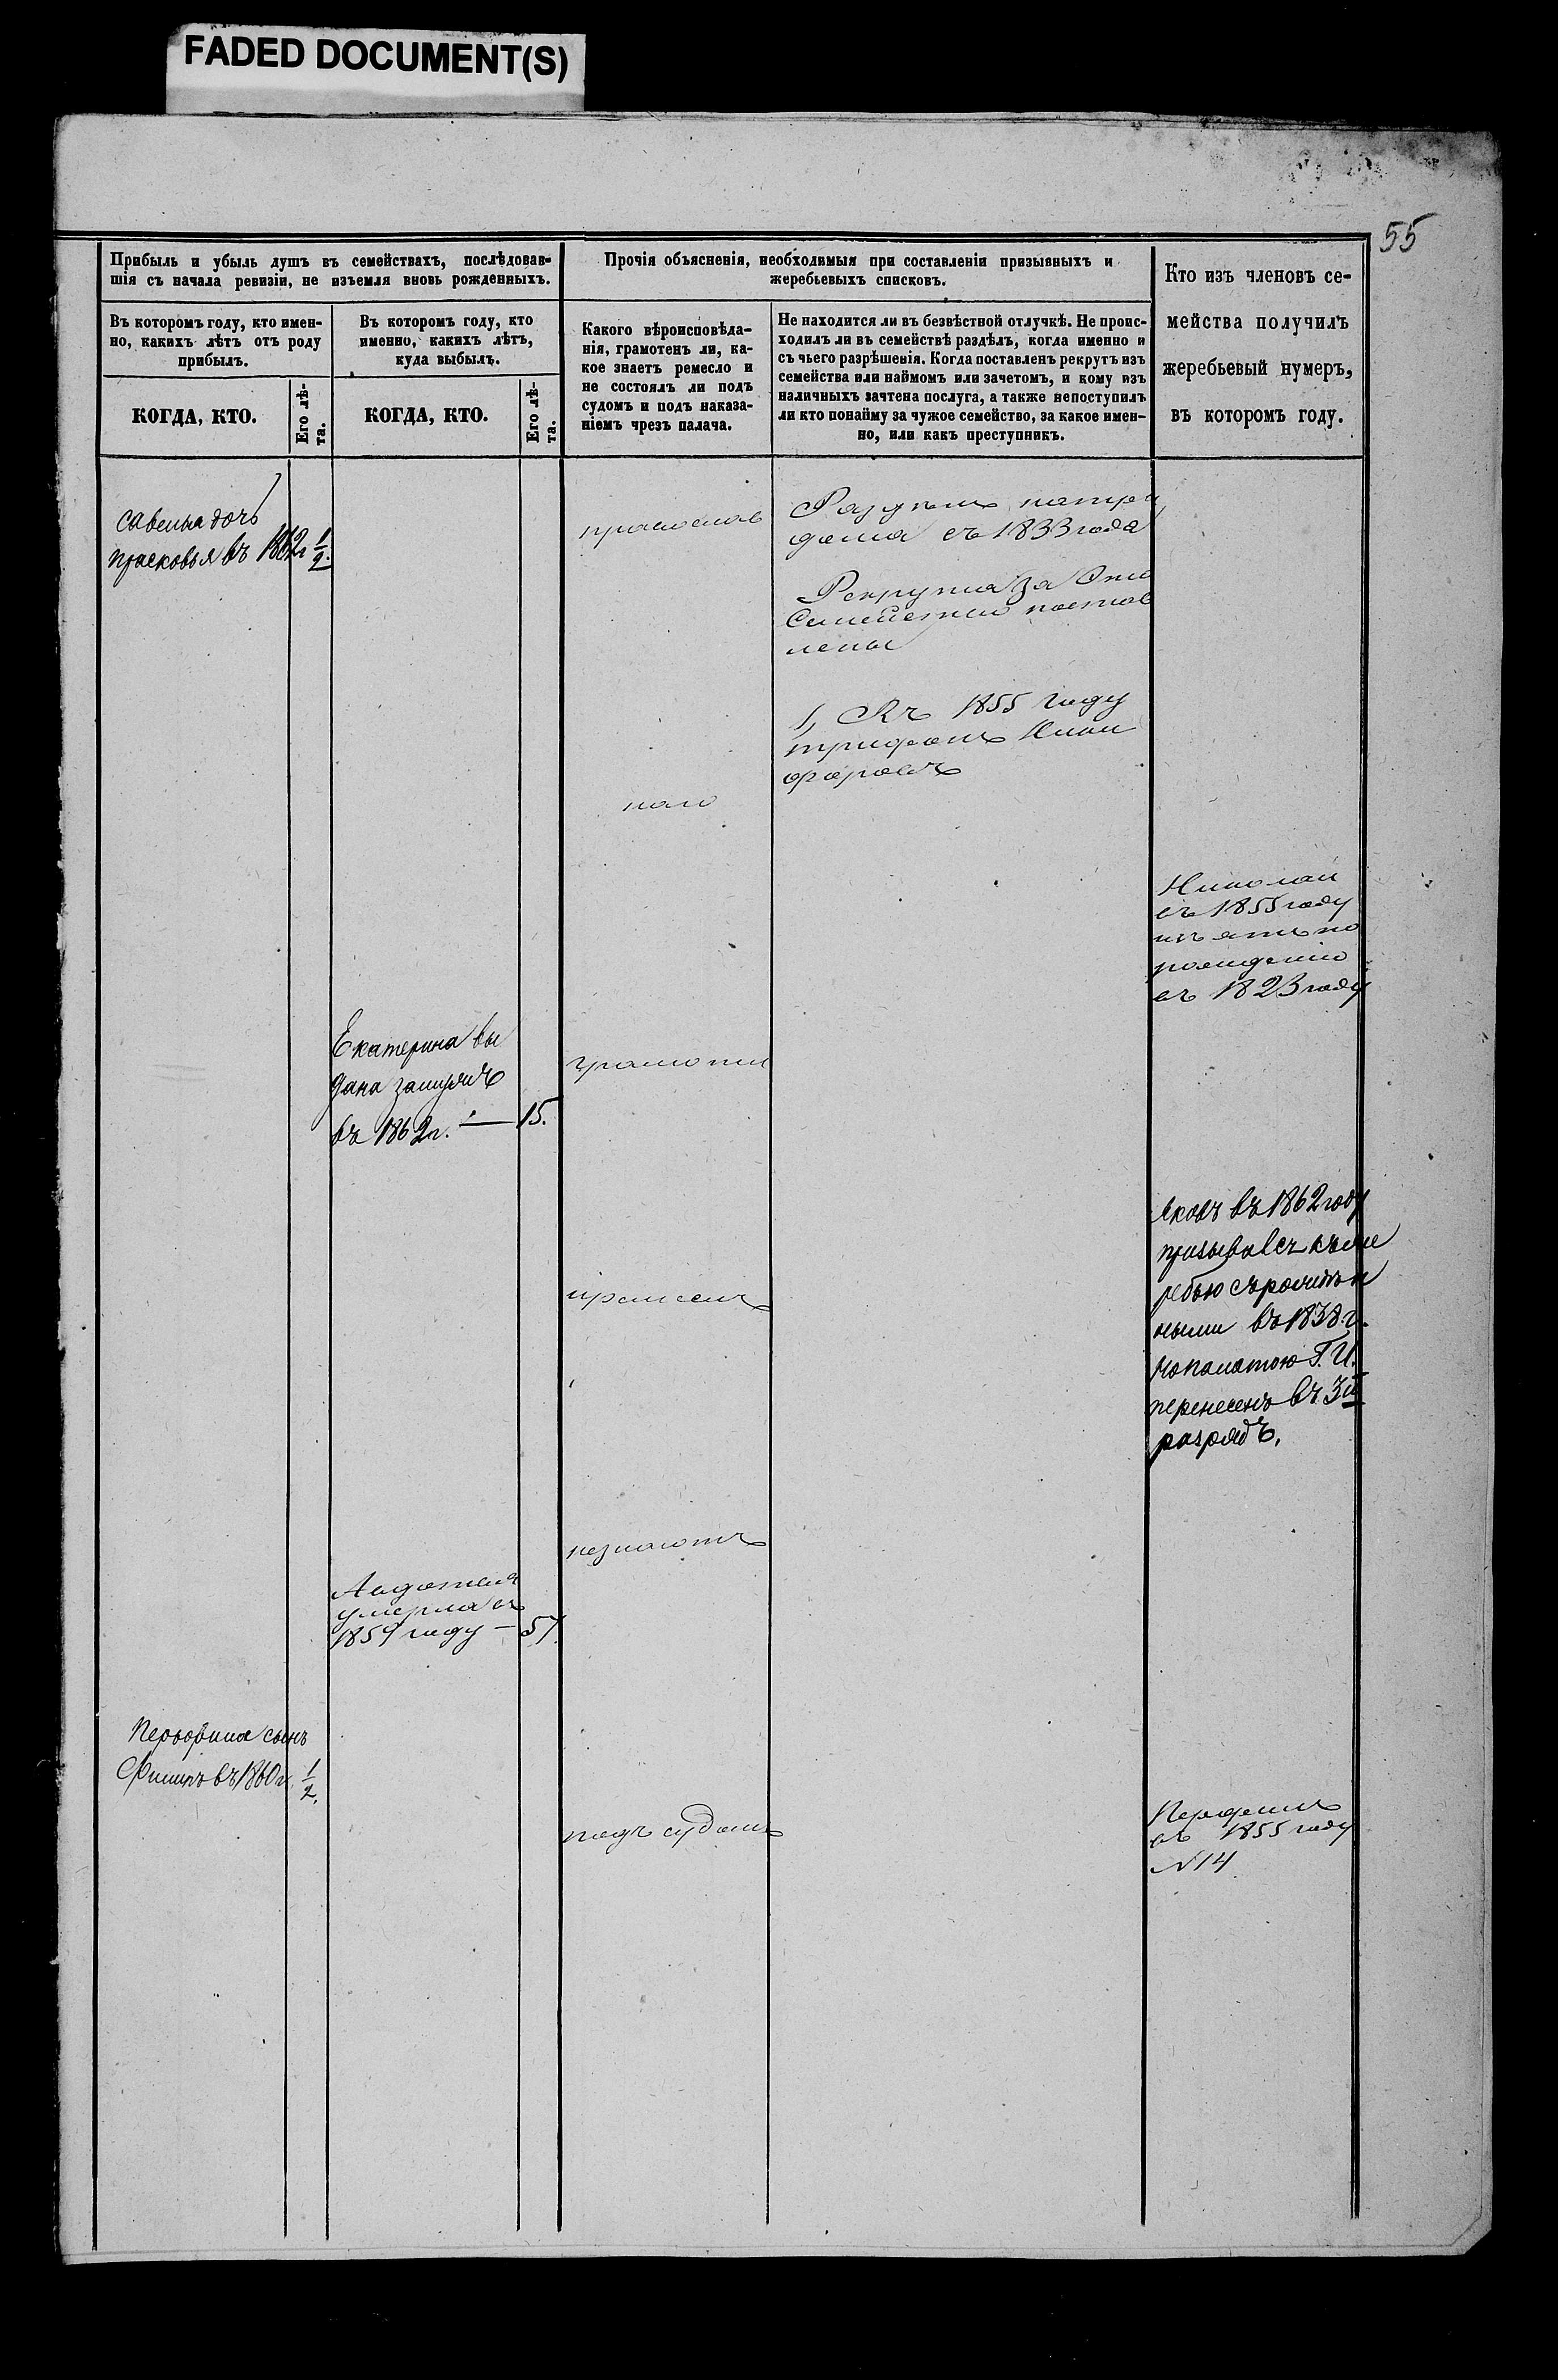 FADED DOCUMENT(S)
55
Прибыль и убыль душъ въ семействахъ, послѣдовав-
шія съ начала ревизіи, не изъемля вновь рожденныхъ.
Прочія объясненія, необходимыя при составленіи призывныхъ и
жеребьевыхъ списковъ.
Кто изъ членовъ се-
мейства получилъ
жеребьевый нумеръ,
въ которомъ году.
Въ которомъ году, кто имен-
но, какихъ лѣтъ отъ роду
прибылъ.
Въ которомъ году, кто
именно, какихъ лѣтъ,
куда выбылъ.
Какого вѣроисповѣда-
нія, грамотенъ ли, ка-
кое знаетъ ремесло и
не состоялъ ли подъ
судомъ и подъ наказа-
ніемъ чрезъ палача.
Не находится ли въ безвѣстной отлучкѣ. Не проис-
ходилъ ли въ семействѣ раздѣлъ, когда именно и
съ чьего разрѣшенія. Когда поставленъ рекрутъ изъ
семейства или наймомъ или зачетомъ, и кому изъ
наличныхъ зачтена послуга, а также непоступилъ
ли кто понайму за чужое семейство, за какое имен-
но, или какъ преступникъ.
КОГДА, КТО.
Его лѣ-
та.
КОГДА, КТО.
Его лѣ-
та.
савелья дочь
прасковья въ 1862г 1/2.
православ
съ 1833 года
Рекрута за
лены
1, Къ 1855 году
трифонъ Ники
форовъ
наго
Николай
въ 1855 году
рождению
въ 1823 году
Екатерина вы
дана замужъ
въ 1862г. — 15.
грамоты
Яковъ въ 1862 году
призывался къ же
ребью съ рожден
ными въ 1838 г.
палатою Г. И.
перенесенъ въ 3й
разрядъ.
ремеслъ
незнаютъ
Авдотья
умерла въ
1859 году — 57
Перфилья сынъ
Филипъ въ 1860 г. 1/2.
подъ судомъ
Перфилъ
въ 1855 году
N 14